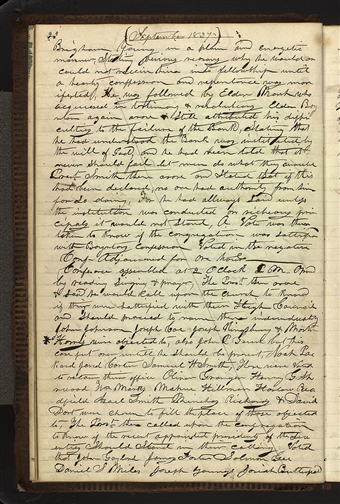 September 1837
Brigham Young in a plain and energetic
manner, Stating various reasons why he would or
could not receive them into fellowship until
a hearty confession and repentance was man
ifested, He was followed by Elder Marsh who
acquiesced in testimony & resolutions Elder Boy
nton again arose & still attributed his diffi
culties to the failure of the Bank, Stating that
he had understood the Bank was instituted by
the will of God, and he had been told that it
never should fail let men do what they would
Prest Smith then arose and Stated that if this
had been declared, no one had authority from him
for so doing, For he had allways Said unless
the institution was conducted on richeous prin
cipals it would not Stand, A Vote was then
taken to know if the congregation was Satisfied
with Boyntons Confession Voted in the negative
Conf Adjourned for one hour
Conference assembled at 2 O Clock P.M. Opened
by reading Singing & prayer, The Prest then arose
& Said he would call upon the church to know
if they were Satisfied with their High Council
and Should proceed to name them individually
John Johnson Joseph Coe Joseph Kingsbury & Martin
Harris were objected to, also John P. Green but his
case put over until he should be present, Noah Pac
kard Jared Carter Samuel H Smith, These were voted
to retain their office Oliver Granger Henry G. Sh
erwood Wm Marks Mayhew Hillman Harlow Rea
dfield Asael Smith Phinehas Richards & David
Dort were chosen to fill the place of those objected
to The Prest then called upon the congregation
to know if the recent appointed presidents of the Sev
enties Should Stand in their calling Voted
that John Gaylord James Foster Salmon Gee
Daniel S Miles Joseph Young Josiah Butterfield